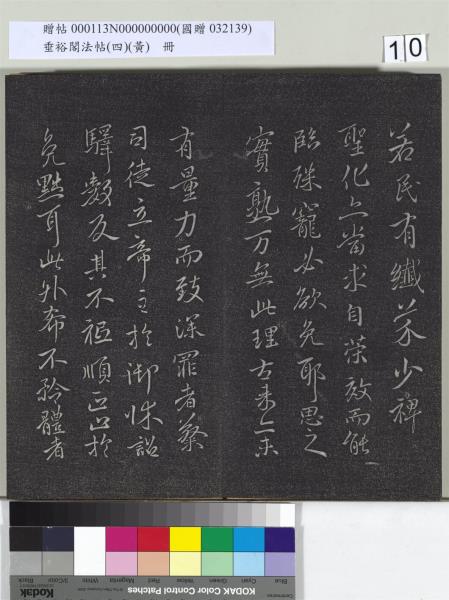 贈帖 000113N000000000(國贈 032139)
垂裕閣法帖(四)(黃) 冊
10
若民有纖芥少裨
聖化亦當求自榮效而能
臨殊寵必欲免耶思之
實熟万無此理古来亦未
有量力而致深罪者蔡
司徒立帝主於御牀詔
驛數反其不祗順正止於
免黜耳此外希不矜體者
Blue Cyan Green Yellow Red Magenta White 3/Color Black
KODAK Color Control Patches
Kodak